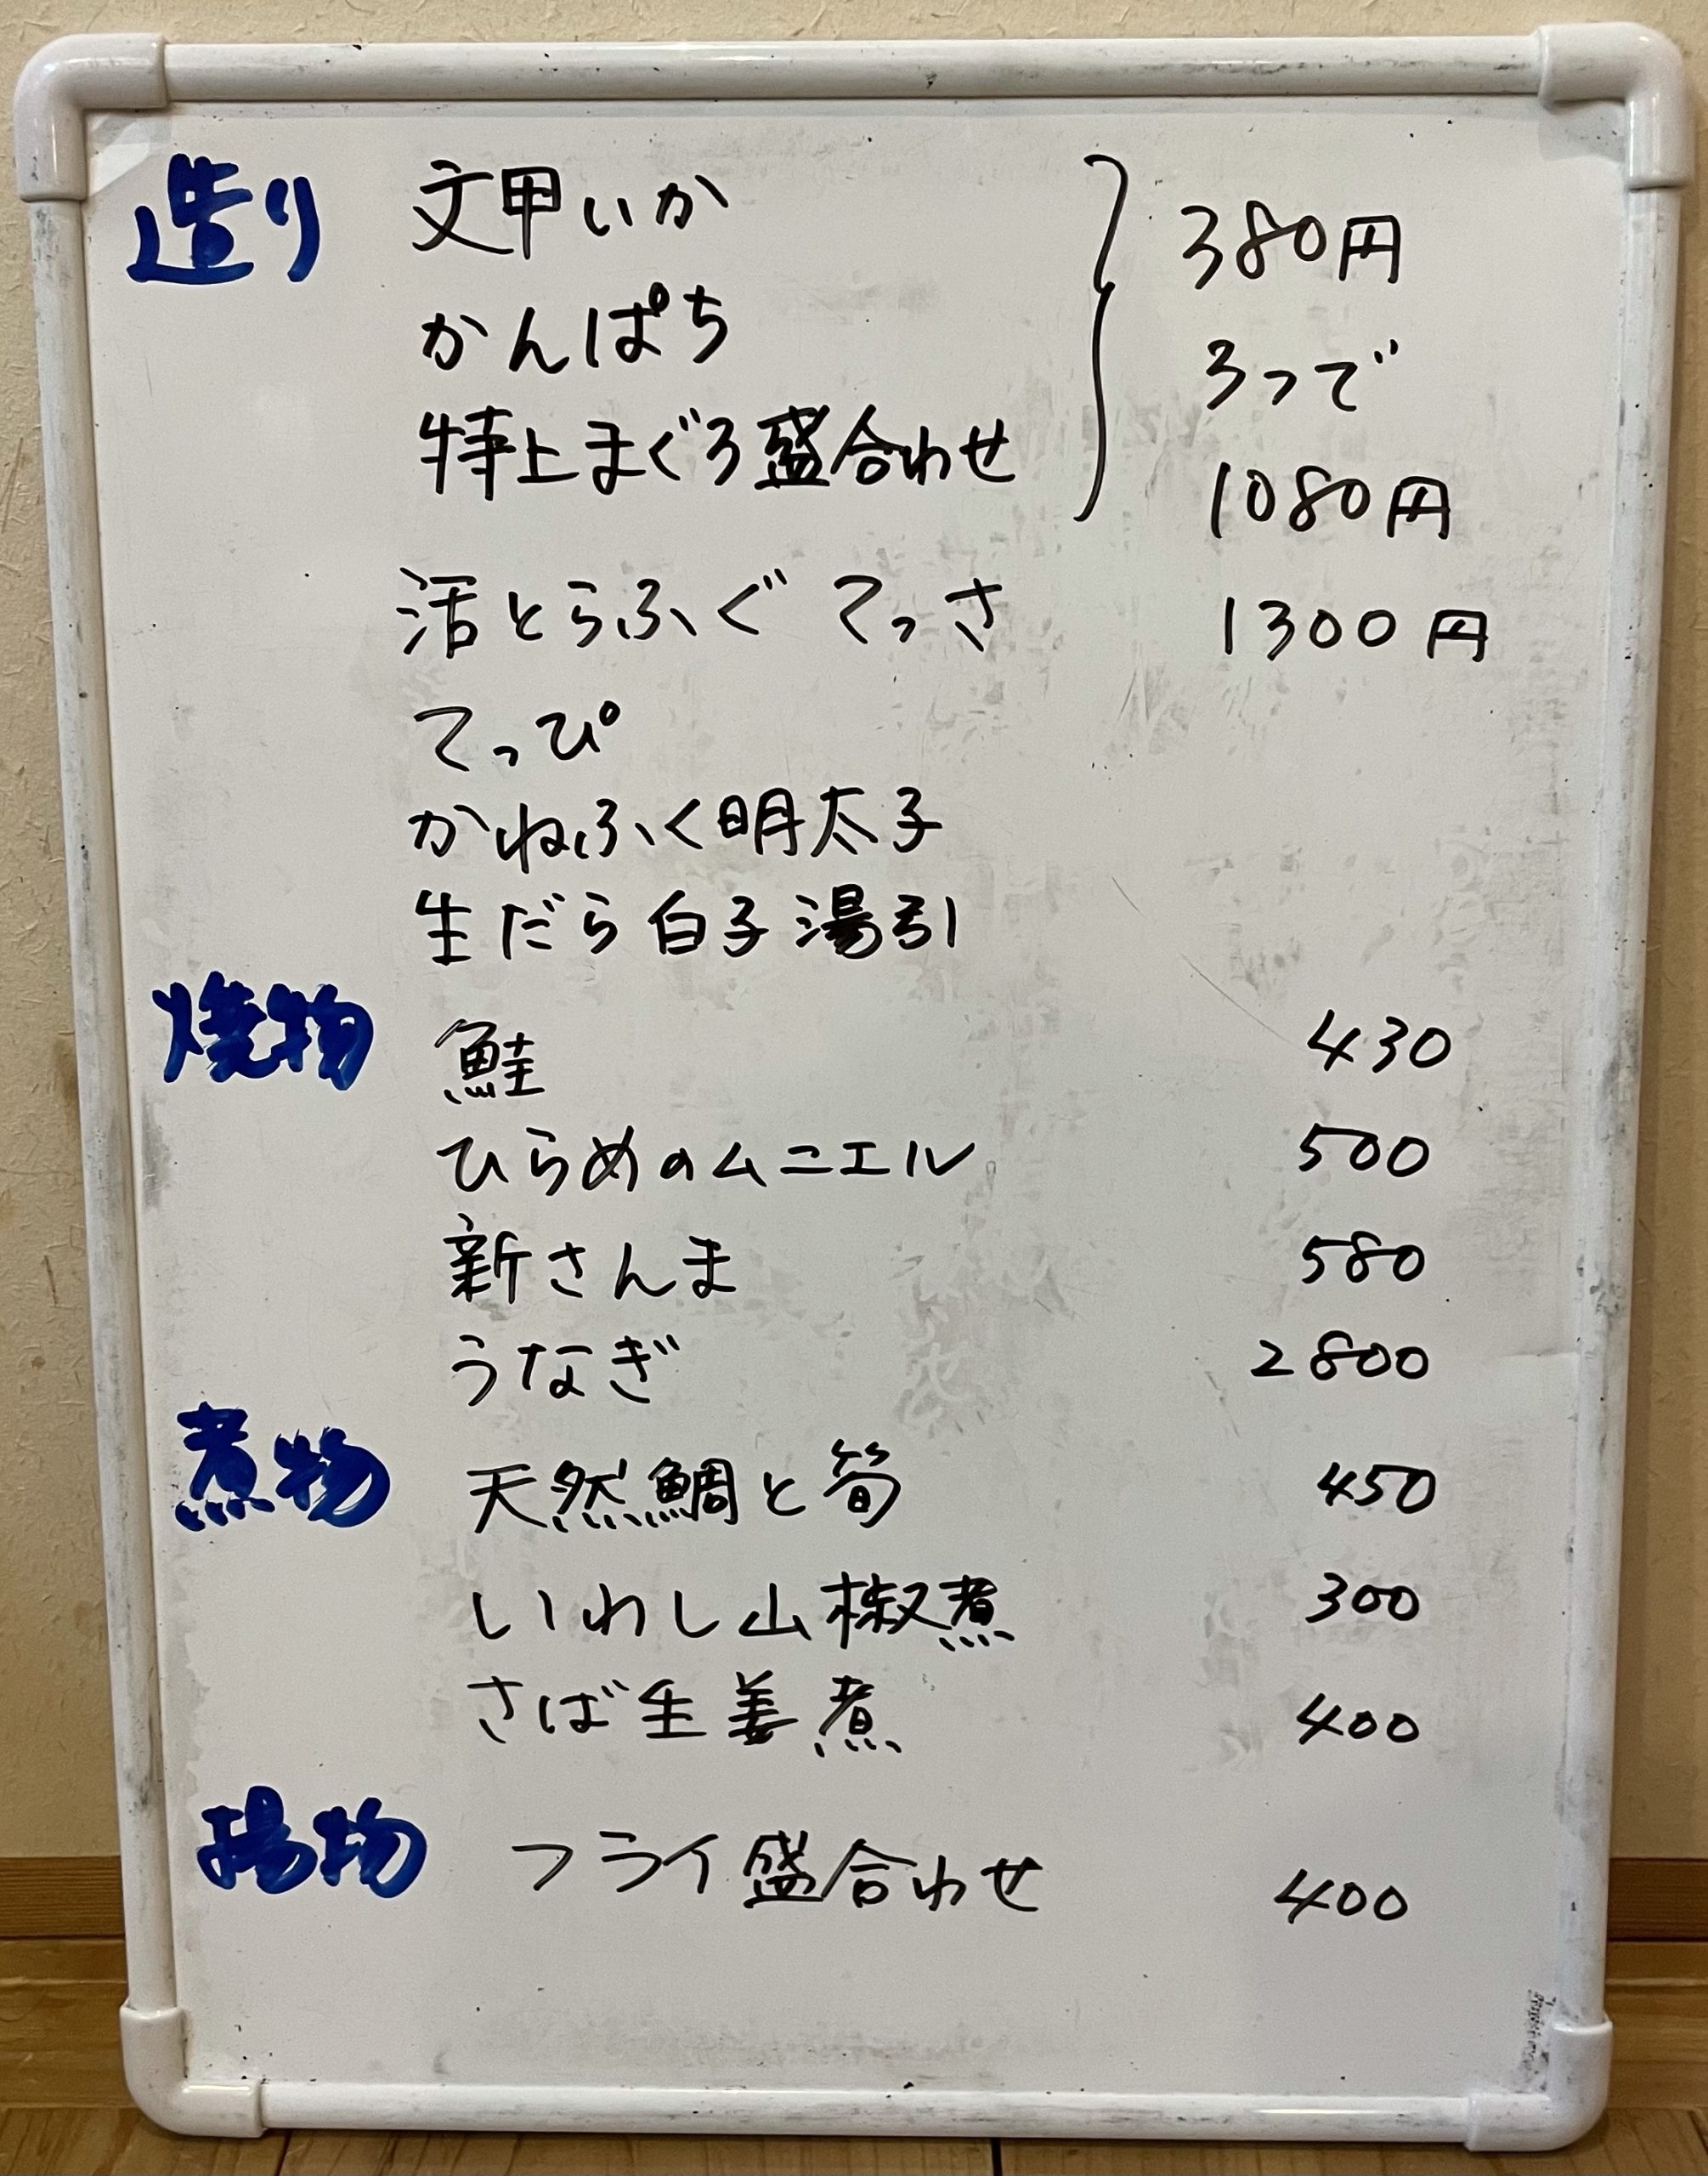 造り 文甲いか 380円
かんぱち 3つで
特上まぐろ盛合わせ 1080円
活とらふぐ てっさ 1300円
てっぴ
かねふく明太子
生だら白子湯引
焼物 鮭 430
ひらめのムニエル 500
新さんま 580
うなぎ 2800
煮物 天然鯛と筍 450
いわし山椒煮 300
さば生姜煮 400
揚物 フライ盛合わせ 400